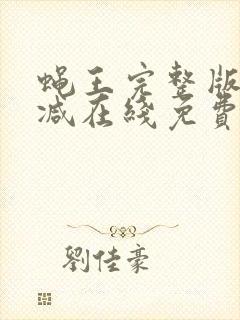 蝇王完整版
减在线免費
劉佳豪